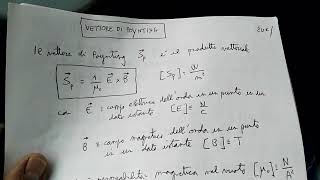 VETTORE DI POYNTING
Il vettore di Poynting S⃗p è il prodotto vettoriale
S⃗p = 1/μ₀ E⃗ × B⃗ [Sp] = W/m²
E⃗ = campo elettrico dell'onda in un punto in
un dato istante [E] = N/C
B⃗ = campo magnetico dell'onda in un punto
in un dato istante [B] = T
permeabilità magnetica nel vuoto [μ₀] = N/A²